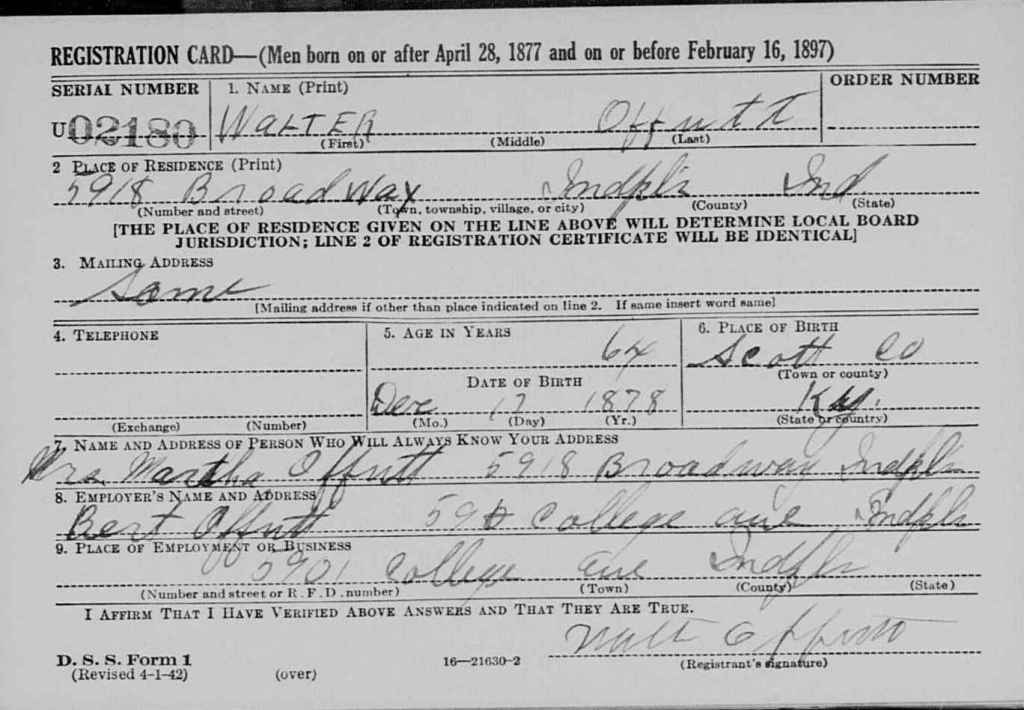 REGISTRATION CARD—(Men born on or after April 28, 1877 and on or before February 16, 1897)
SERIAL NUMBER 1. NAME (Print) ORDER NUMBER
U 02180 WALTER Offutt
(First) (Middle) (Last)
2 PLACE OF RESIDENCE (Print)
5918 Broadway Indpls Ind
(Number and street) (Town, township, village, or city) (County) (State)
[THE PLACE OF RESIDENCE GIVEN ON THE LINE ABOVE WILL DETERMINE LOCAL BOARD
JURISDICTION; LINE 2 OF REGISTRATION CERTIFICATE WILL BE IDENTICAL]
3. MAILING ADDRESS
Same
[Mailing address if other than place indicated on line 2. If same insert word same]
4. TELEPHONE 5. AGE IN YEARS 6. PLACE OF BIRTH
64 Scott Co
(Town or county)
DATE OF BIRTH
Dec 17 1878 Ky.
(Exchange) (Number) (Mo.) (Day) (Yr.) (State or country)
7. NAME AND ADDRESS OF PERSON WHO WILL ALWAYS KNOW YOUR ADDRESS
Mrs. Martha Offutt 5918 Broadway Indpls
8. EMPLOYER'S NAME AND ADDRESS
Bert Offutt College ave Indpls
9. PLACE OF EMPLOYMENT OR BUSINESS
5901 College ave Indpls
(Number and street or R. F. D. number) (Town) (County) (State)
I AFFIRM THAT I HAVE VERIFIED ABOVE ANSWERS AND THAT THEY ARE TRUE.
Walt Offutt
D. S. S. Form 1 16—21630-2 (Registrant's signature)
(Revised 4-1-42) (over)